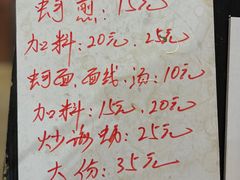 蚵煎:15元
加料:20元、25元
蚵面、面线、汤:10元
加料:15元、20元
炒海蛎:25元
大份:35元